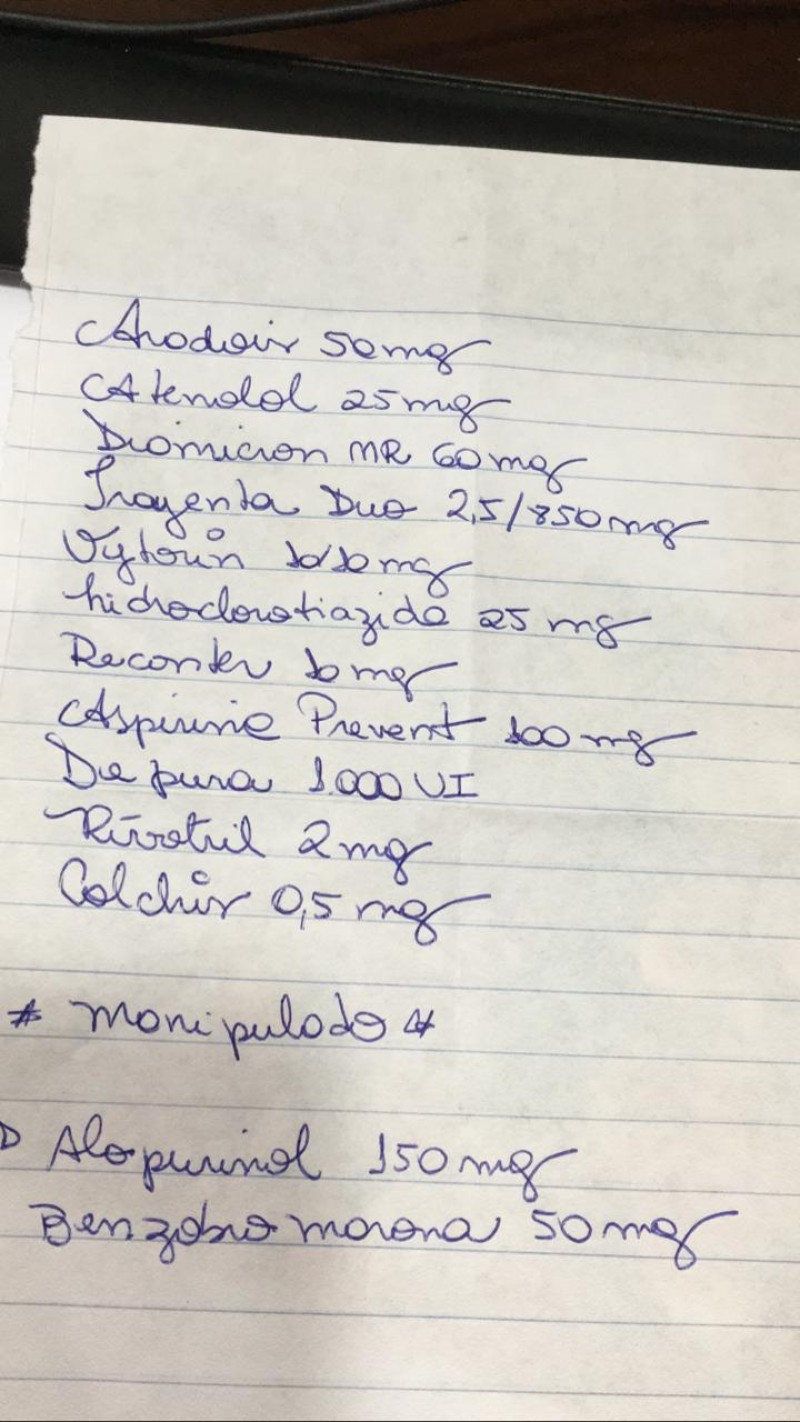 Aradois 50mg
Atenolol 25mg
Diamicron MR 60mg
Trayenta Duo 2,5/850mg
Vytorin 10/10mg
hidroclorotiazida 25mg
Reconter 10mg
Aspirina Prevent 100mg
De pura 1.000 UI
Rivotril 2mg
Colchis 0,5mg
* manipulado *
D Alopurinol 150mg
Benzobromarona 50mg